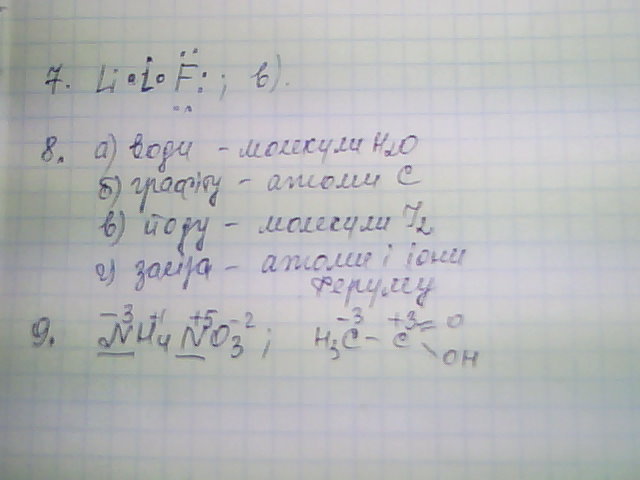 7. Li · i · F : ; в).
8. а) води - молекули H₂O
б) графіту - атоми C
в) йоду - молекули I₂
г) заліза - атоми і іони
Феруму
9. N⁻³H⁺¹₄N⁺⁵O⁻²₃ ; H₃C⁻³ - C⁺³ = O
\ OH